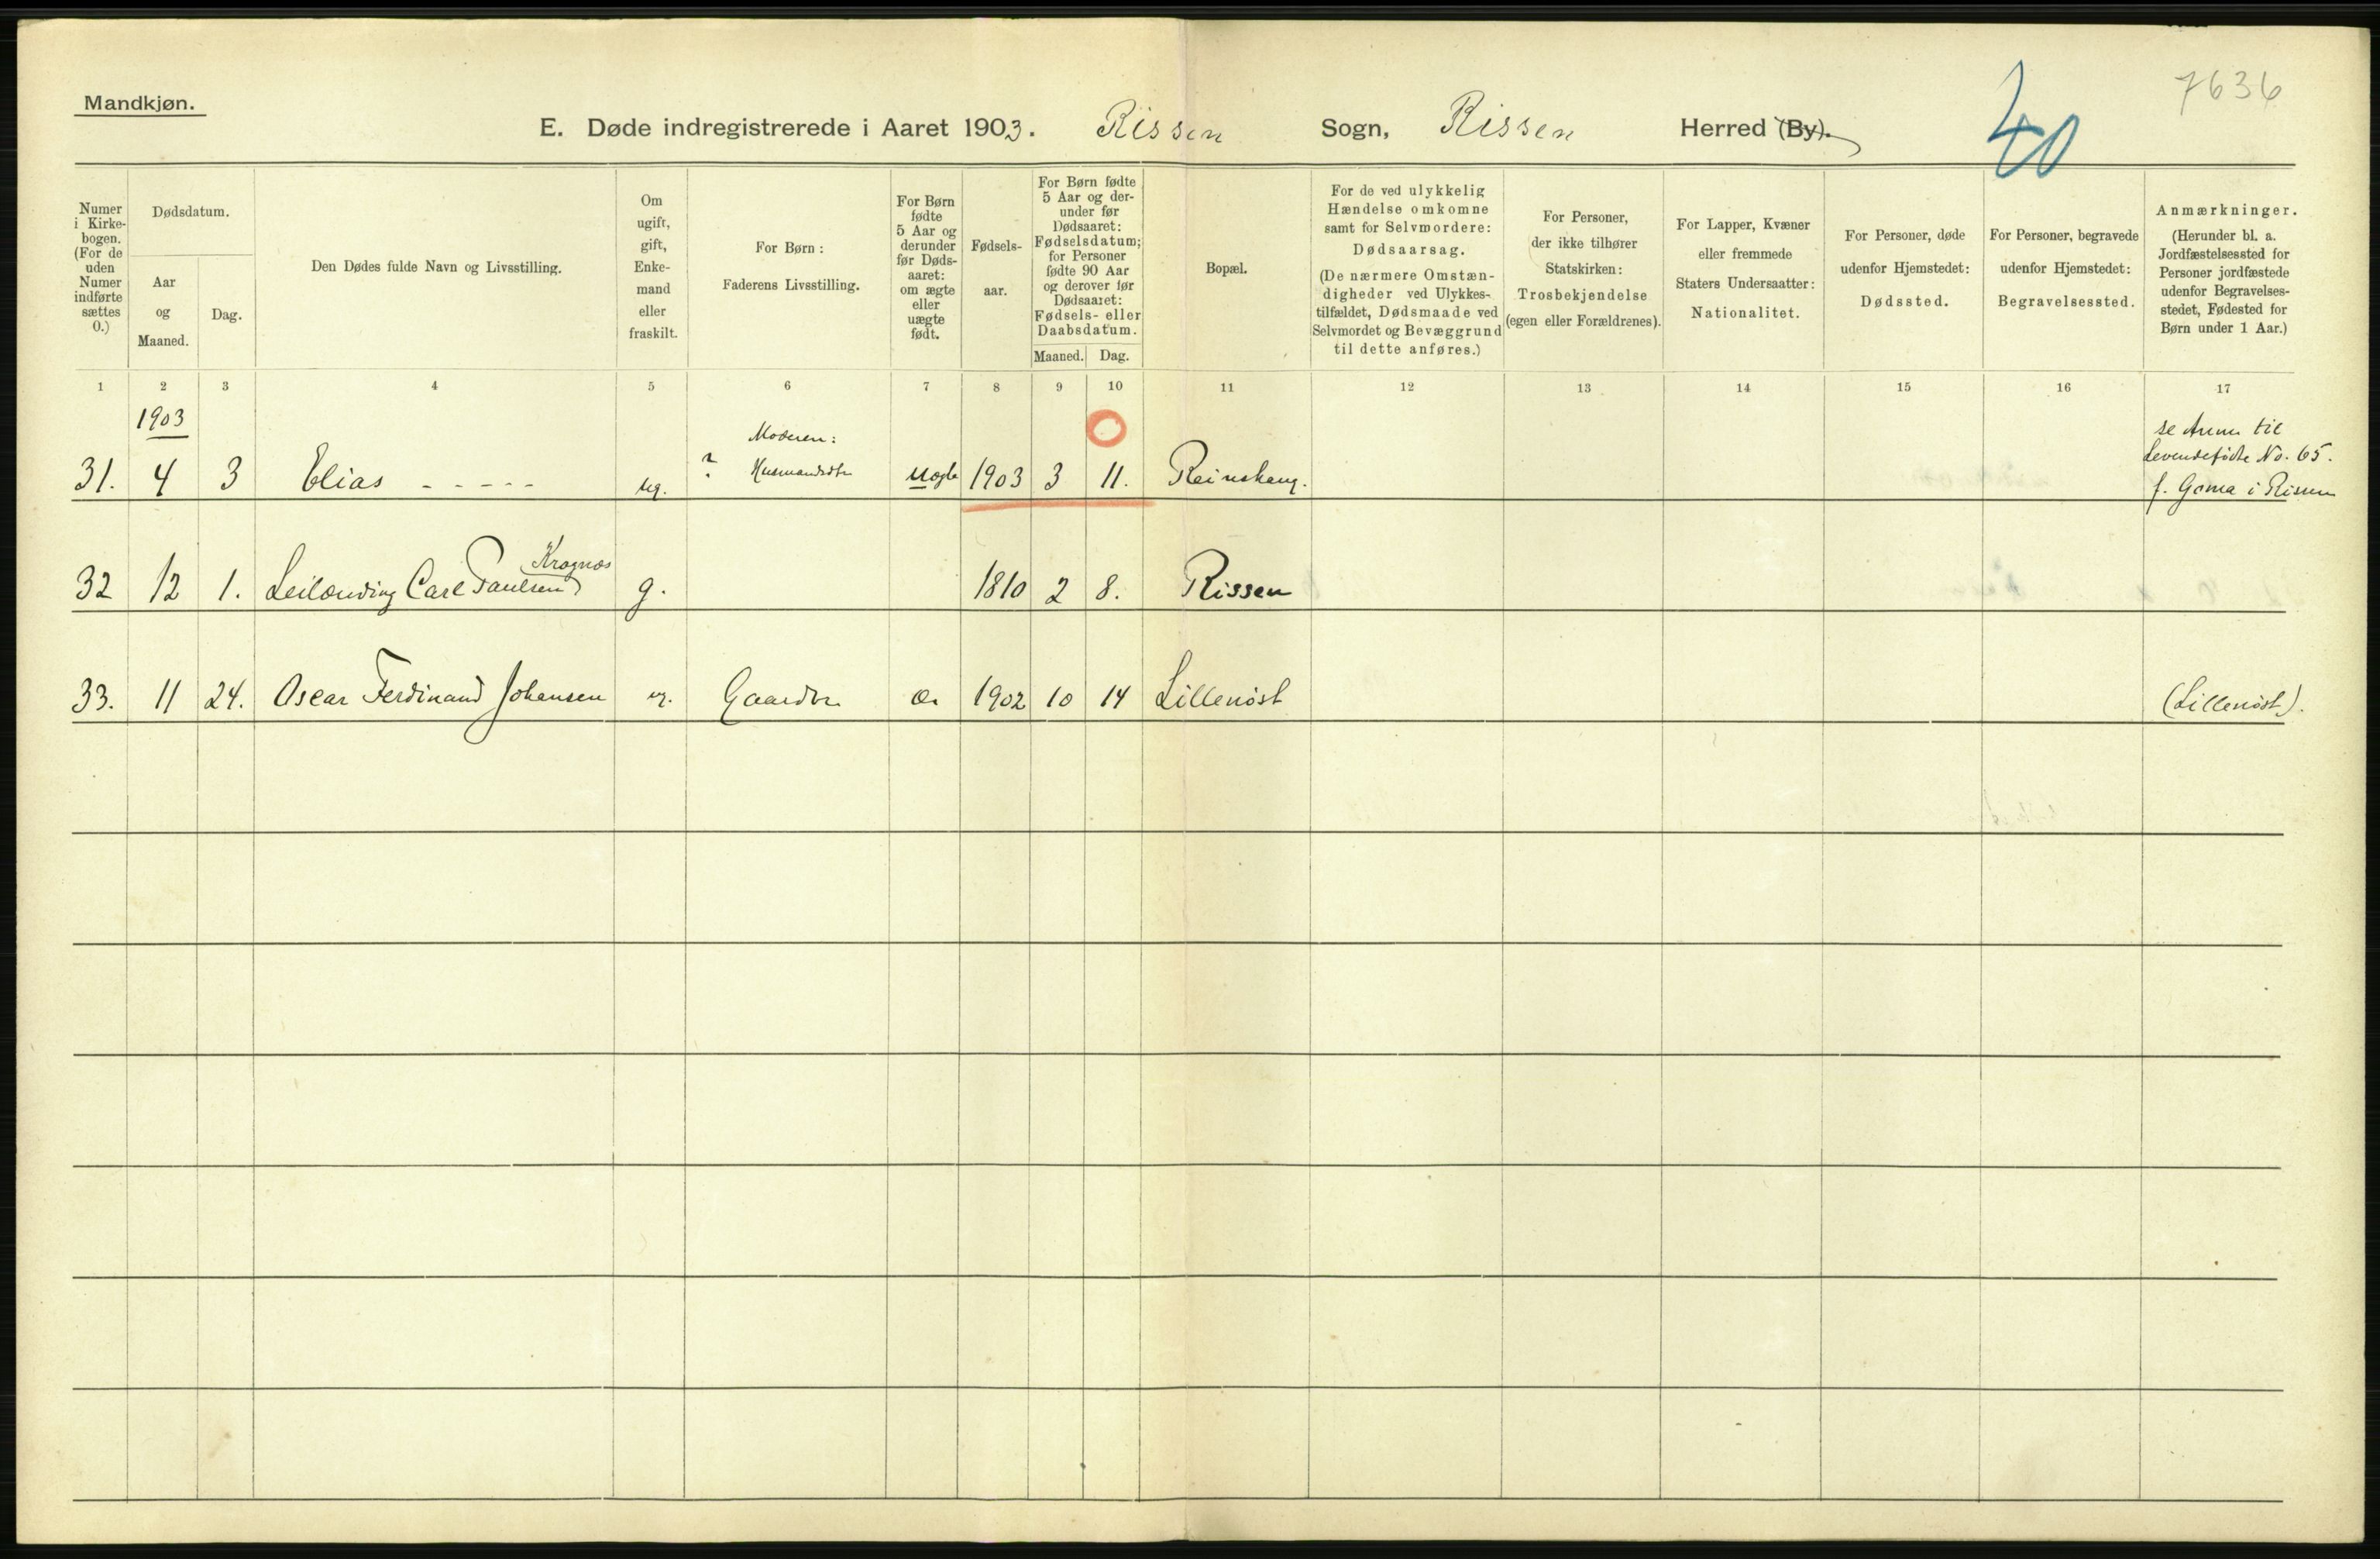 7636
40
Mandkjøn.
E. Døde indregistrerede i Aaret 1903. Rissen Sogn, Rissen Herred (By).
Numer i Kirkebogen. (For de uden Numer indførte sættes 0.)
Dødsdatum.
Aar og Maaned.
Dag.
Den Dødes fulde Navn og Livsstilling.
Om ugift, gift, Enkemand eller fraskilt.
For Børn: Faderens Livsstilling.
For Børn fødte 5 Aar og derunder før Dødsaaret: om ægte eller uægte født.
Fødselsaar.
For Børn fødte 5 Aar og derunder før Dødsaaret: Fødselsdatum; for Personer fødte 90 Aar og derover før Dødsaaret: Fødsels- eller Daabsdatum.
Maaned. Dag.
Bopæl.
For de ved ulykkelig Hændelse omkomne samt for Selvmordere: Dødsaarsag. (De nærmere Omstændigheder ved Ulykkestilfældet, Dødsmaade ved Selvmordet og Bevæggrund til dette anføres.)
For Personer, der ikke tilhører Statskirken: Trosbekjendelse (egen eller Forældrenes).
For Lapper, Kvæner eller fremmede Staters Undersaatter: Nationalitet.
For Personer, døde udenfor Hjemstedet: Dødssted.
For Personer, begravede udenfor Hjemstedet: Begravelsessted.
Anmærkninger. (Herunder bl. a. Jordfæstelsessted for Personer jordfæstede udenfor Begravelsesstedet, Fødested for Børn under 1 Aar.)
1 2 3 4 5 6 7 8 9 10 11 12 13 14 15 16 17
1903
31. 4 3 Elias - - - - - ug. ? Moderen: Husmandsdtr uægte 1903 3 11. Reinshaug. se Anm til Levendefødte No. 65. f. i Rissen
32 12 1. Carl Paulsen g. 1810 2 8. Rissen
33. 11 24. Oscar Ferdinand Johansen ug. Gaardbr. æ. 1902 10 14 Lillenøst (Lillenøst).